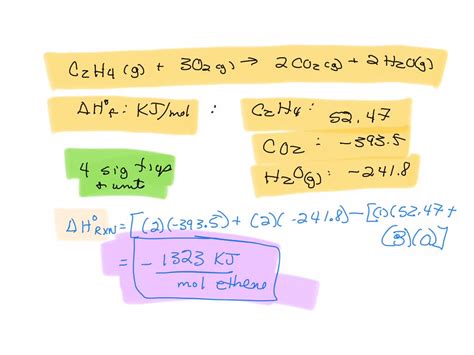 C2H4(g) + 3O2(g) → 2CO2(g) + 2H2O(g)
ΔH°f : KJ/mol : C2H4 : 52.47
CO2 : -393.5
4 sig figs + unit
H2O(g) : -241.8
ΔH°RXN = [(2)(-393.5) + (2)(-241.8) - [(1)(52.47 +
(3)(0)]
= - 1323 KJ
mol ethene